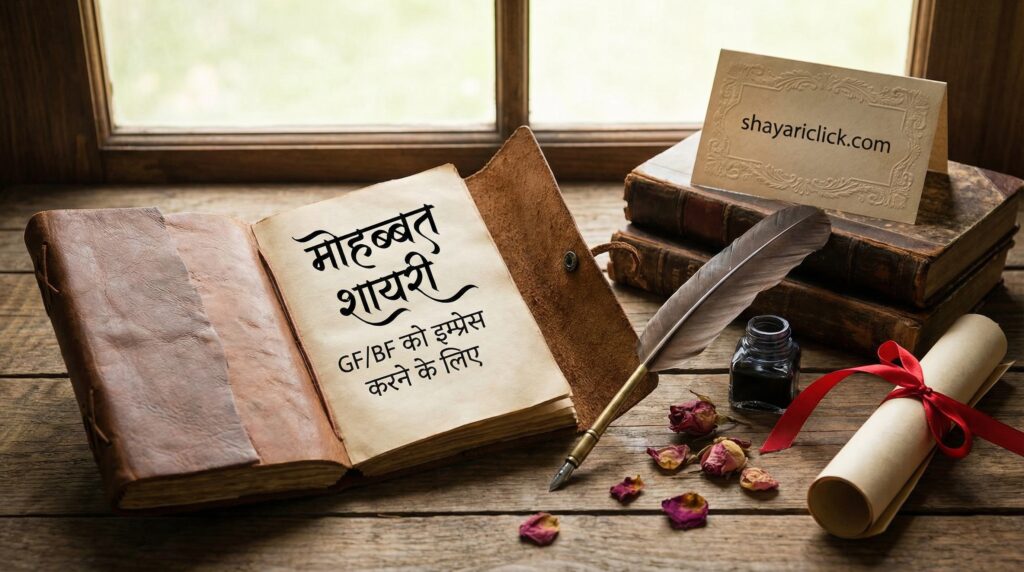 मोहब्बत
शायरी
GF/BF को इम्प्रेस
करने के लिए
shayariclick.com